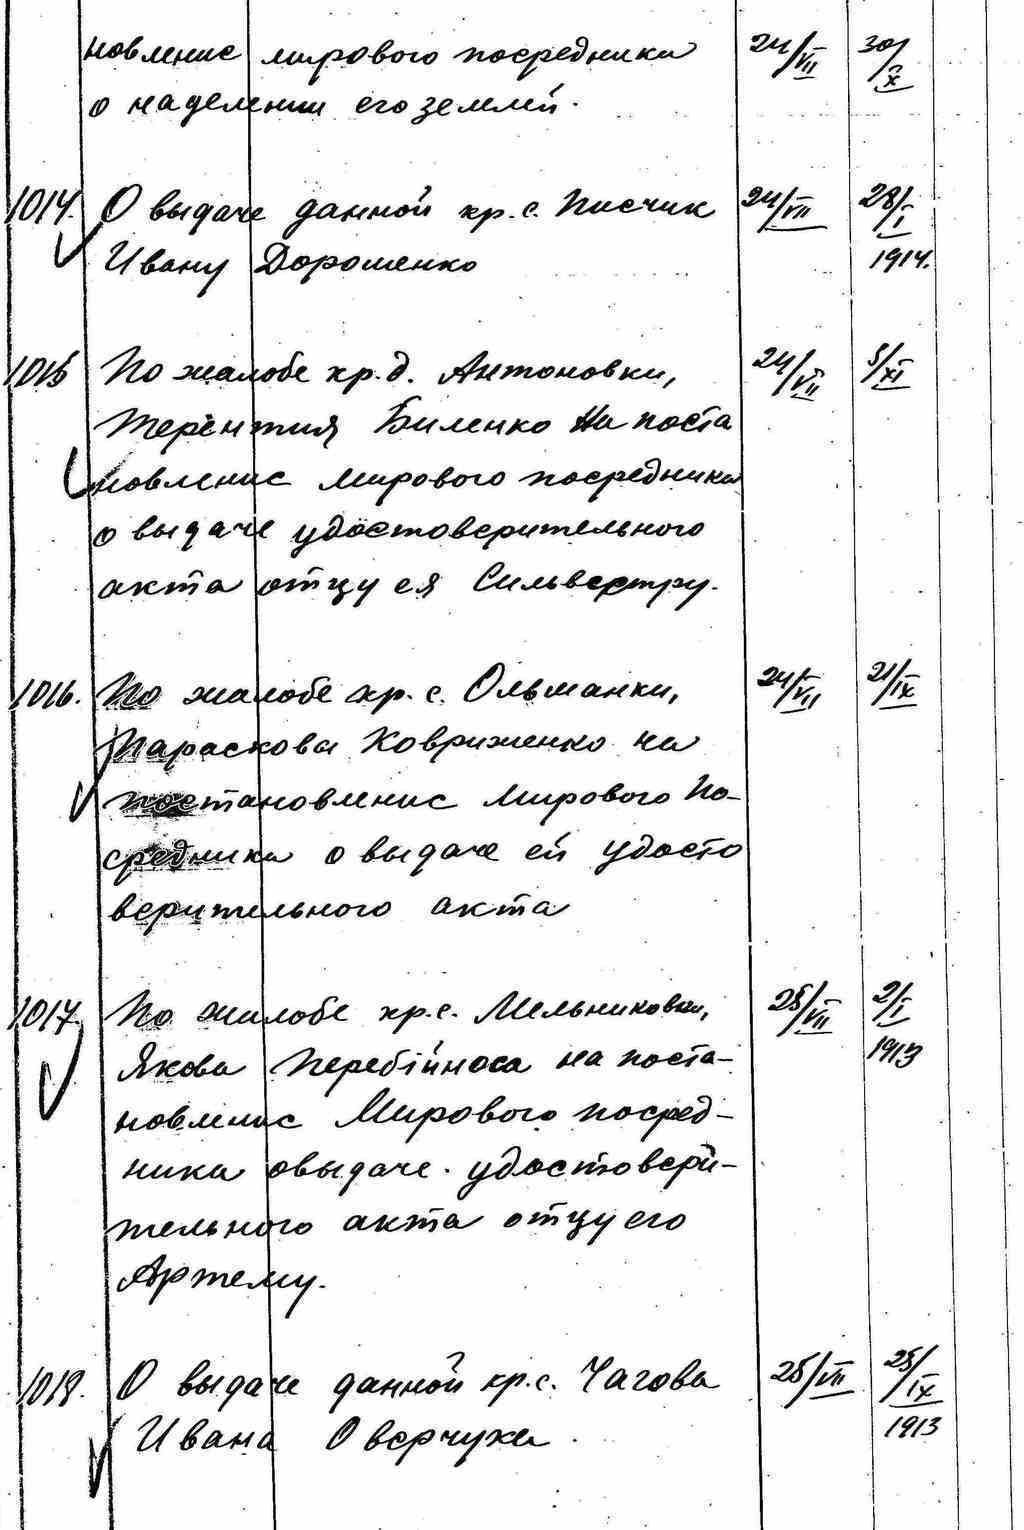 новление мирового посредника 24/VII 30/X
о наделении его землей.
1014. О выдаче данной кр. с. Писчик 24/VII 28/I
Ивану Дорошенко 1914.
1015 По жалобе кр. д. Антоновки, 24/VII 5/XI
Терентия Биленко на поста
новление мирового посредника
о выдаче удостоверительного
акта отцу ея Сильвестру.
1016. По жалобе кр. с. Ольшанки, 24/VII 21/IX
Параскова Ковриженко на
постановление Мирового По-
средника о выдаче ей удосто
верительного акта
1017. По жалобе кр. с. Мельниковки, 25/VII 2/I
Якова Перебiйноса на поста- 1913
новление Мирового посред-
ника о выдаче удостовери-
тельного акта отцу его
Артему.
1018. О выдаче данной кр. с. Чагова 25/VII 25/IX
Ивана Оверчука 1913